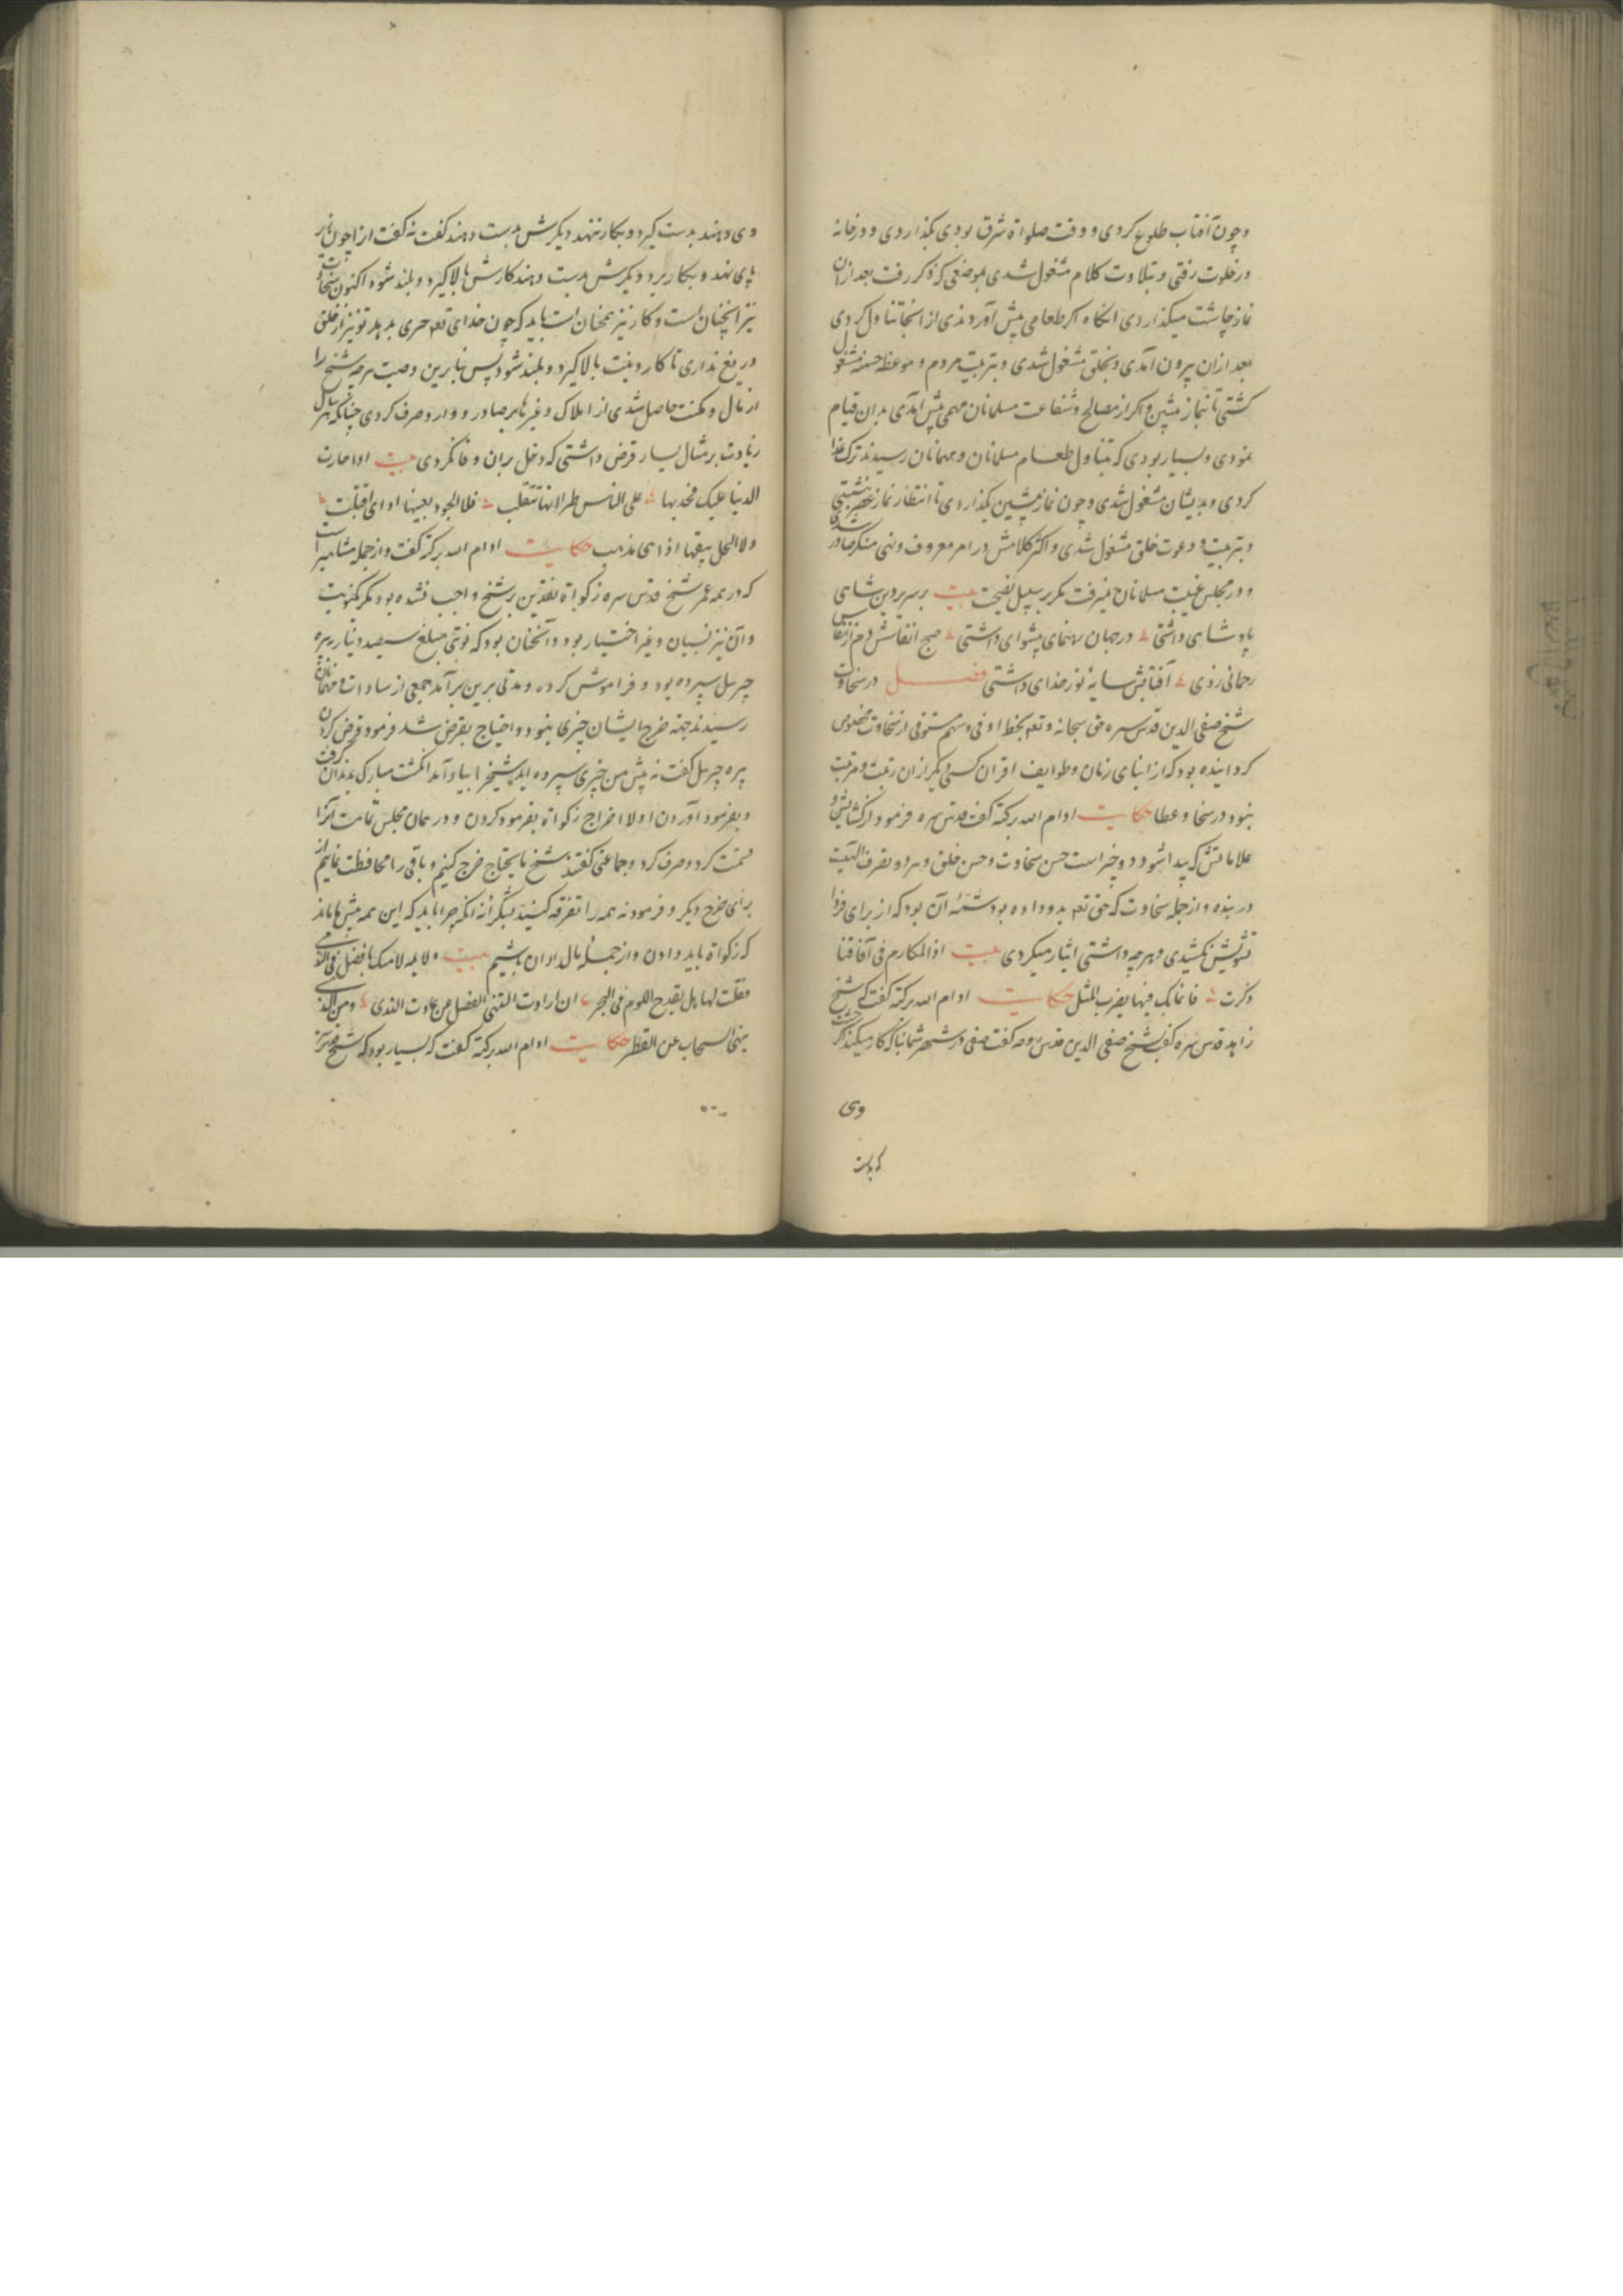 و چون آفتاب طلوع کردی و وقت صلواة شرق بودی بگذاردی و در خانه
در خلوت رفتی و بتلاوت کلام مشغول شدی بموضعی که ذکر رفت بعد از ان
نماز چاشت میگذاردی انکاه اکر طعامی پیش آوردندی از انجا تناول کردی
بعد ازان بیرون آمدی و بخلق مشغول شدی و بتربیت مردم و موعظه حسنه مشغول
کشتی تا نماز پیشین و اکر از مصالح و شفاعت مسلمانان مهمی پیش آمدی بدان قیام
نمودی و بسیار بودی که تناول طعام مسلمانان و مهمانان رسیدند ترک غذا
کردی و بدیشان مشغول شدی و چون نماز پیشین بگذاردی تا انتظار نماز عصر نشستی
و بتربیت و دعوت خلق مشغول شدی و اکثر کلامش در امر معروف و نهی منکر صادر شدی
و در مجلس غیبت مسلمانان نمیرفت مکر بر سبیل نصیحت بیت بر سریر دین شاهی
پادشاهی داشتی در جهان رهنمای پیشوای داشتی صبح انفاسش دم از انفاس
رحمانی زدی آفتابش سایهٔ نور خدای داشتی فصل در سخاوت
شیخ صفی الدین قدس سره حق سبحانه و تعم بحظ اوفی و سهم مستوفی از سخاوت مخصوص
کردانیده بود که از ابنای زمان و طوایف اقران کسی دیکر از ان رتبت و مرتبت
نبود در سخا و عطا حکایت ادام الله برکته کفت قدس سره فرمود از کشایش و
علاماتش که پیدا شود دو چیز است حسن سخاوت و حسن خلق و هر دو تصرف الهیت
در بنده و از جمله سخاوت که حق تعم بدو داده بود شمهٔ آن بود که از برای فردا
تشویش نکشیدی و هر چه داشتی ایثار میکردی بیت اذا المکارم فی آفاقنا
ذکرت فانما بک فیها یضرب المثل حکایت ادام الله برکته کفت که شیخ
زاهد قدس سره کفت شیخ صفی الدین قدس روحه کفت صفی در شهر شما بنا که کار میکند اکر خشت
وی
وی دهند بدست کیرد و بکار ننهد دیکرش بدست دهند کفت نه کفت از ا چون بر
پای نهد و بکار برد دیکرش بدست دهند کارش بالا کیرد و بلند شود اکنون سخاوت
نیز انچنان است و کار نیز همچنان است باید که چون خدای تعم چیزی بدهد تو نیز از خلق
دریغ نداری تا کار دینت بالا کیرد و بلند شود پس بنابرین وصیت هر چه شیخ را
از مال و مکنت حاصل شدی از املاک و غیرها بر صادر و وارد صرف کردی چنانکه هر سال
زیادت بر منال بسیار قرض داشتی که دخل بران وفا نکردی بیت اذا جارت
الدنیا علیک فجد بها علی الناس طرا انها تتقلب فلا الجود یفنیها اذا هی اقبلت
ولا البخل یبقیها اذا هی تذهب حکایت ادام الله برکته کفت و از جمله مشاهیر است
که در همه عمر شیخ قدس سره زکواة نقدین بر شیخ واجب نشده بود مکر یکنوبت
و آن نیز بنسیان و غیر اختیار بود و آنچنان بود که نوبتی مبلغ سیصد دینار پیره
جبریل سپرده بود و فراموش کرده و مدتی برین برآمد جمعی از سادات و مهمانان
رسیدند جهة خرج ایشان چیزی نبود و احتیاج بقرض شد فرمود قرض کردن
پیره جبریل کفت نه پیش من چیزی سپرده اید شیخرا بیاد آمد انکشت مبارک بدندان کرفت
و بفرمود آوردن اولا اخراج زکواة بفرمود کردن و در همان مجلس تمامت آنرا
قسمت کرد و صرف کرد و جماعتی کفتند شیخ مایحتاج خرج کنیم و باقی را محافظت نماییم از
برای خرج دیکر و فرمود نه همه را تفرقه کنید بشکرانه آنکه چرا باید که این همه پیش ما ماند
که زکواة باید دادن و از جمله مال داران باشیم بیت و لایمه لامتک یا فضل فی الندی
فقلت لها هل یقدح اللوم فی البحر ان ارادت لتثنی الفضل عن عادت الندی ومن الذی
یثنی السحاب عن القطر حکایت ادام الله برکته کفت که بسیار بود که شیخ قدس سره